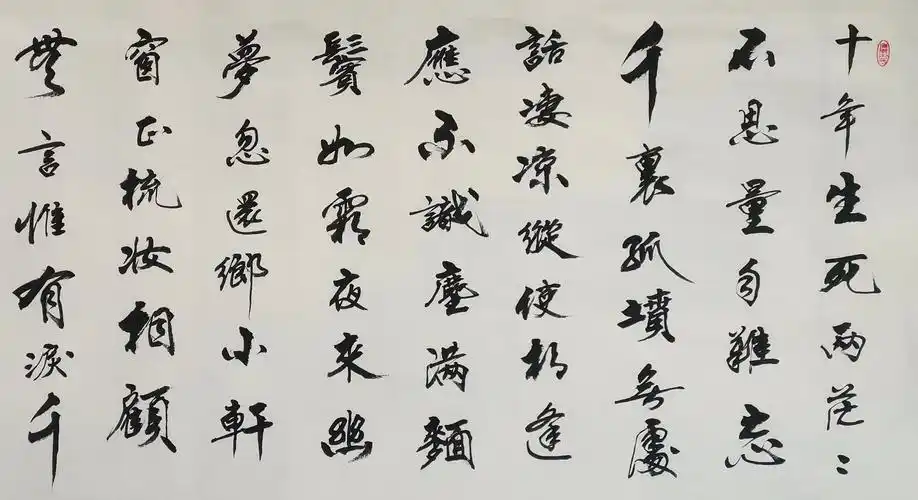 十年生死兩茫〻
不思量自難忘
千裏孤墳無處
話凄凉縱使相逢
應不識塵滿麵
鬢如霜夜來幽
夢忽還鄉小軒
窗正梳妝相顧
無言惟有淚千